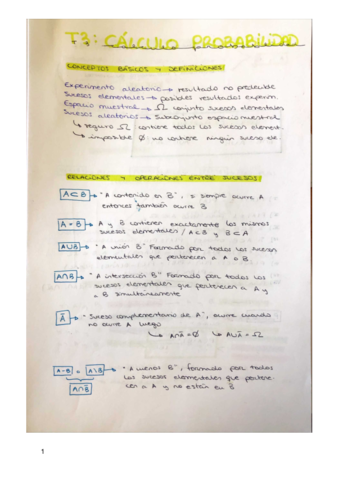 T3: CÁLCULO PROBABILIDAD
CONCEPTOS BÁSICOS Y DEFINICIONES:
Experimento aleatorio → resultado no predecible
Sucesos elementales → posibles resultados experim.
Espacio muestral → Ω conjunto sucesos elementales
Sucesos aleatorios → Subconjunto espacio muestral
↳ seguro Ω contiene todos los sucesos element.
↳ imposible Ø: no contiene ningún suceso ele.
RELACIONES Y OPERACIONES ENTRE SUCESOS:
A⊂B → "A contenido en B", si siempre ocurre A
entonces también ocurre B
A=B → A y B contienen exactamente los mismos
sucesos elementales / A⊂B y B⊂A
A∪B → "A unión B" Formado por todos los sucesos
elementales que pertenecen a A o B.
A∩B → "A intersección B" Formado por todos los
sucesos elementales que pertenecen a A y
a B simultáneamente
Ā → "Suceso complementario de A", ocurre cuando
no ocurre A luego
↳ A∩Ā=Ø ↳ A∪Ā=Ω
A-B = A\B → "A menos B", formado por todos
los sucesos elementales que pertene-
cen a A y no están en B
A∩B̄
1